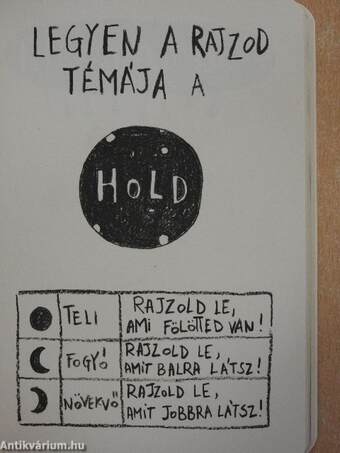 LEGYEN A RAJZOD
TÉMÁJA A
HOLD
TELI
RAJZOLD LE,
AMI FÖLÖTTED VAN!
FOGYÓ
RAJZOLD LE,
AMIT BALRA LÁTSZ!
NÖVEKVŐ
RAJZOLD LE,
AMIT JOBBRA LÁTSZ!
Antikvárium.hu